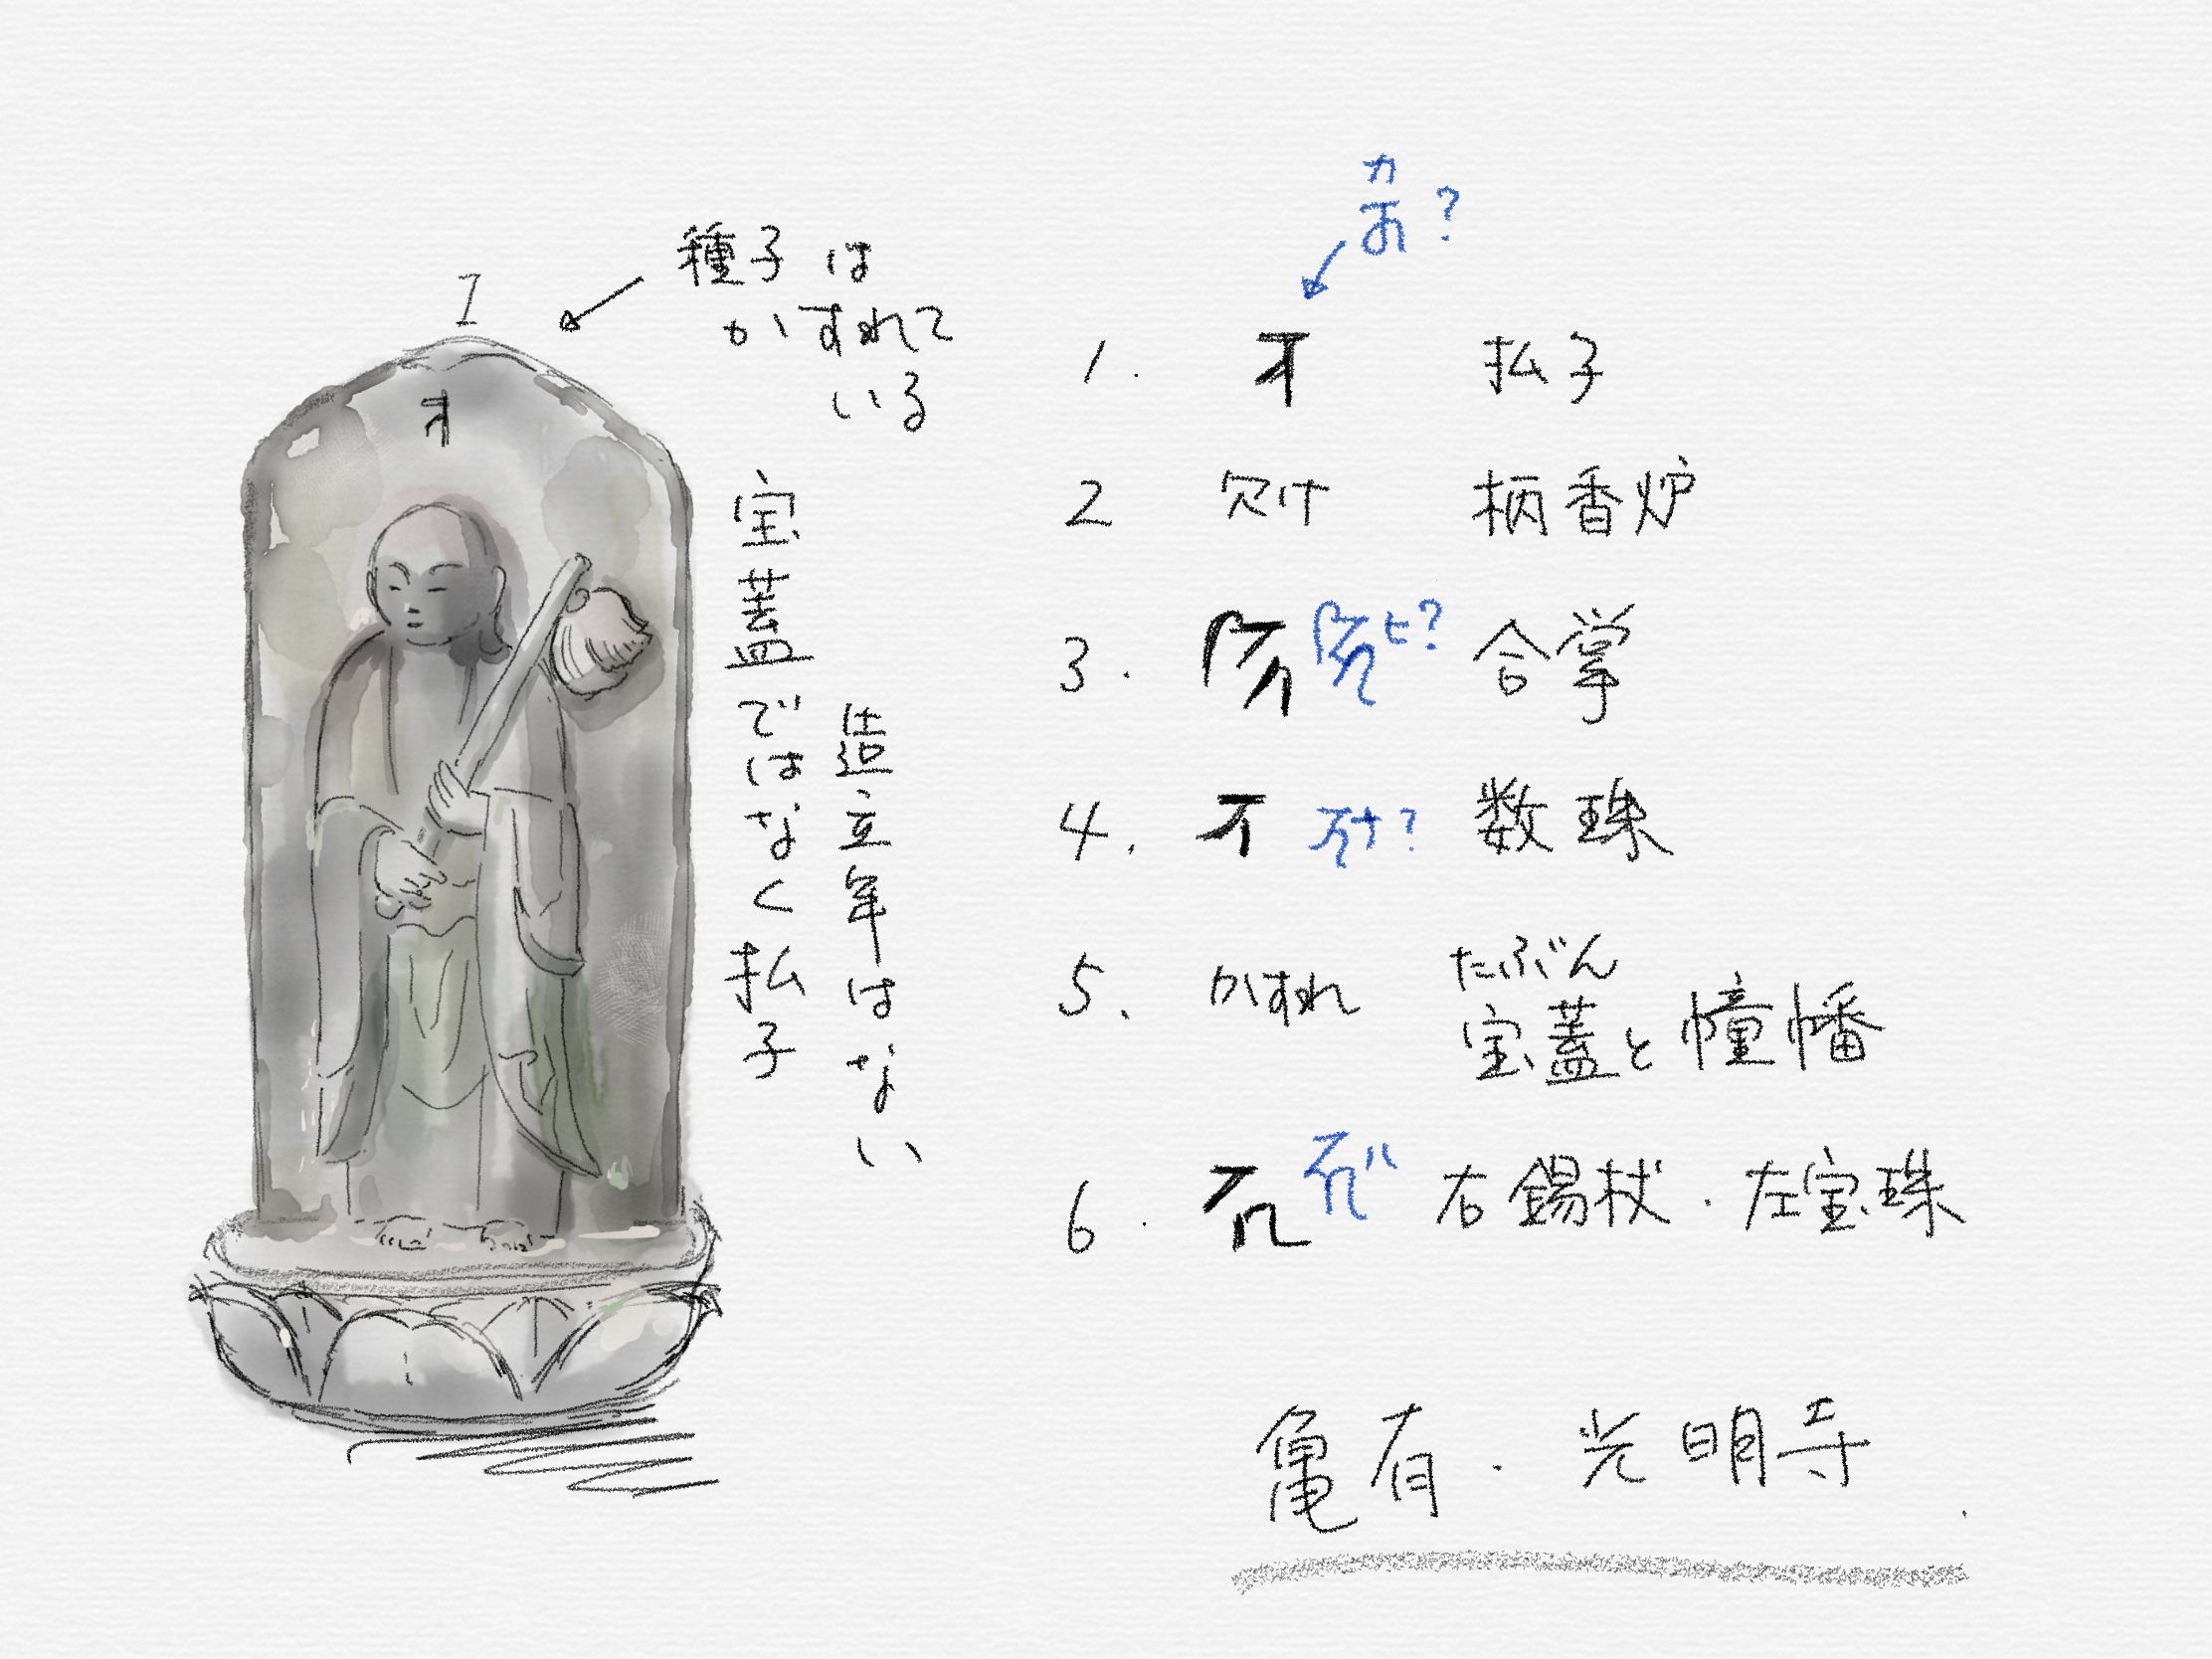 I
種子は
かすれて
いる
宝蓋ではなく払子
造立年はない
カ
?
1. 払子
2 欠け 柄香炉
3. ヒ? 合掌
4. ナ? 数珠
5. かすれ たぶん
宝蓋と幢幡
6. 右錫杖・左宝珠
亀有・光明寺